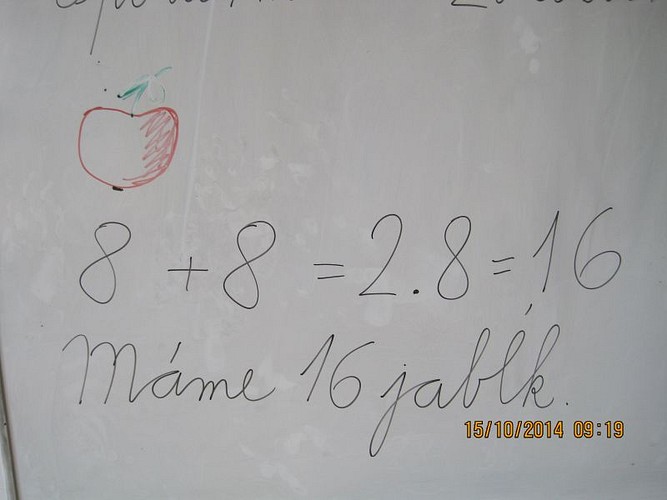 8 + 8 = 2.8 = 16
Máme 16 jabĺk.
15/10/2014 09:19